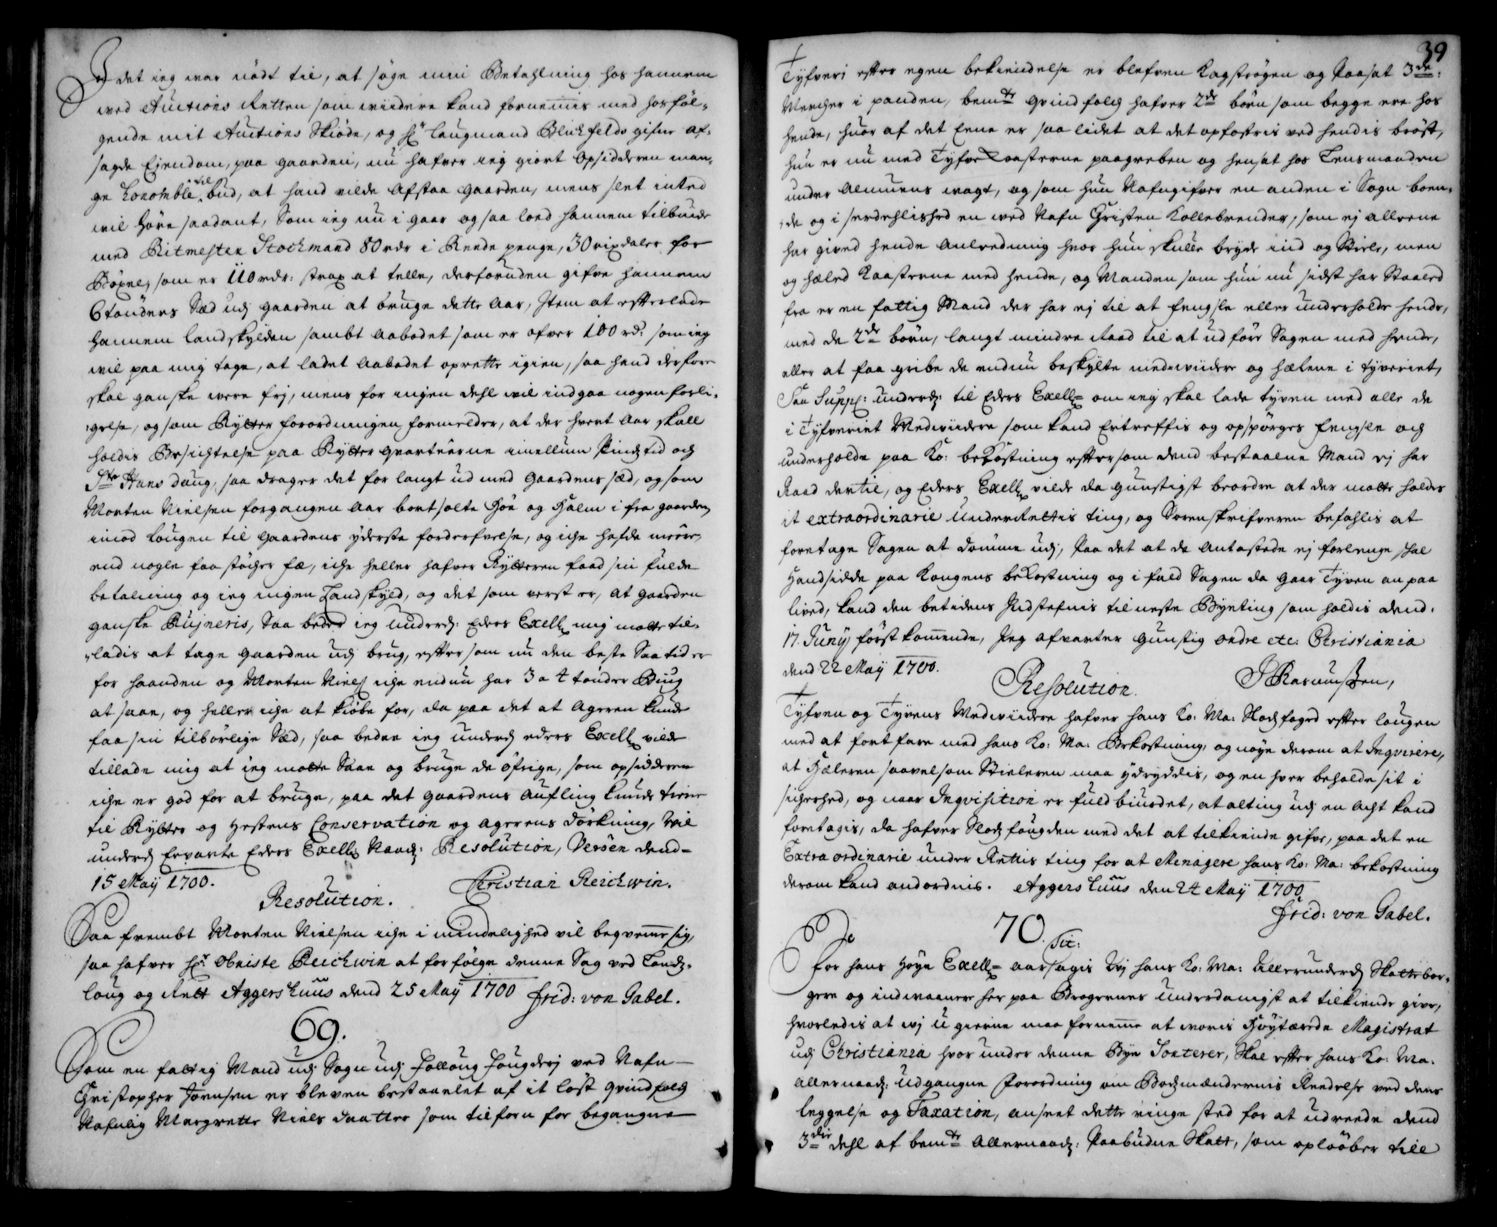 J det ieg war nödt til, at söge min Betahlning hos hannem
wed Auctions Retten som widere kand fornemis med hosföl-
gende mit Auctions Skiöde, og Hr Laugmand Blichfelds gifne af-
sagde Eiendom, paa gaarden, nu hafver ieg giort Opsidderen man-
ge Lovmblie til bud, at hand vilde Afstaa gaarden, mens slet inted
vil höre saadant, Som ieg nu i gaar og saa loed hannem tilbiude
med Ritmester Stockmand 80 rdr i Rende penge, 30 rixdaler for
som er 110 rdr: strax at telle, desforuden gifve hannem
6 tönders Sæd udj gaarden at bruge dette Aar, Item at efterlade
hannem landskylden sambt aabodet som er ofver 100 rd: som ieg
vil paa mig tage, at ladet Aabodet oprette igien, saa hand derfore
skal ganske were frj, mens for ingen dehl wil indgaa nogen forli-
gelse, og som Rytter forordningen formelder, at der hvert Aar skall
holdis Besichtelse paa Rytter qvarteerne imellum Pindstid och
Ste Hans daug, saa drager det for langt ud med gaardens sæd, og som
Morten Nielsen forgangen Aar bortsolte Höe og Halm i fra gaarden,
imod lougen til gaardens yderste forderfvelse, og iche hafde meere,
end nogle faa stöcher fæ, iche heller hafver Rytteren faad sin fulde
betalning og ieg ingen Landskyld, og det som verst er, at gaarden
ganske Ruineris, Saa beder ieg underd: Eders Excell: mig motte til-
ladis at tage gaarden udj brug, efftersom nu den beste Saatid er
for haanden og Morten Niels: iche endnu har 3 a 4 tönder Biug
at saae, og heller iche at kiöbe for, da paa det at Ageren kunde
faa sin tilbörlige Sæd, saa beder ieg underd: eders Excell: vilde
tillade mig at ieg motte Saae og bruge de öfrige, som opsidderen
iche er god for at bruge, paa det gaardens Aufling kunde tiene
til Rytter og Hestens Conservation og Agerens dörkning, Wil
underd: Ervarte Eders Excell: Naad: Resolution, Versöen dend-
15 Maij 1700.
Christian Reichwin.
Resolution.
Saa frembt Morten Nielsen iche i mindelighed vil beqvemme sig,
saa hafver Hr Obriste Reichwin at forfölge denne Sag ved Landz-
loug og Rett Aggershuus dend 25 Maij 1700 Frid: von Gabel.
69.
Som en fattig Mand udj Sogn udj Follong fougderj ved Nafn
Christopher Törnsen er bleven bestaalet af it löst qvindfolch
Nafnlig Margrette Niels daatter som tilforn for begangne
39
Tyfveri effter egen bekiendelse er blefven Kagströgen og Paasat 3de:
Mercher i panden, bemte qvindfolch hafver 2de börn som begge ere hos
hende, huor af det Eene er saa lidet at det opfostris ved hendis bröst,
hun er nu med Tyfve Kaasterne paagreben og hensat hos Lensmanden
under Almuens wagt, og som hun Nafngifver en anden i Sogn boen-
de og i serdehlished en wed Nafn Christen Kollebrender, som ej alleene
har gived hende Anledning hvor hun skulle bryde ind og Stiele, men
og hæled Kaasterne med hende, og Manden som hun nu sidst har Staaled
fra er en fattig Mand der har ej til at fengsle eller underholde hende,
med de 2de börn, langt mindre Raad til at udföre Sagen med hende,
eller at faa gribe de endnu beskylte medvidere og hælere i tyveriet,
Saa Supp: underd: til Eders Excell: om ieg skal lade tyven med alle de
i Tyfveriet Medvidere som kand Ertreffis og opspörges fengsle och
underholde paa Ko: bekostning efftersom dend bestaalne Mand ej har
Raad dertil, og Eders Excell: vilde da gunstigst beordre at der motte holdes
it extraordinarie Under Rettis ting, og Sorenskrifveren befahlis at
foretage Sagen at dömme udj, Paa det at de Antastede ej forlenge skal
Handsidde paa Kongens bekostning og i fald Sagen da gaar Tyven an paa
lived, kand den betidens Indstefnis til neste Bynting som holdis dend.
17 Junij först kommende, Jeg afvarter gunstig ordre etc. Christiania
dend 22 Maij 1700.
S Rasmussen,
Resolution.
Tyfven og Tyvens Medvidere hafver hans Ko: Ma: Slodsfoged effter lougen
med at fortfare med hans Ko: Ma: Bekostning, og nöye derom at Inqvirere,
at Hæleren saavelsom Stieleren maa ydryddis, og en hver beholde sit i
sicherhed, og naar Inqvisition er fuldbiurdet, at alting udj en Act kand
foretagis, da hafver Slodsfougden med det at tilkiende gifve, paa det en
Extraordinarie under Rettis ting for at Menagere hans Ko: Ma: bekostning
derom kand andordnis. Aggershuus den 24 Maij 1700
Frid: von Gabel.
70.
Tit:
For hans Höye Excell: aarsagis Wij hans Ko: Ma: Allerunderd: Skattebor-
gere og indwaanere her paa Bragernes underdanigst at tilkiende give,
hvorledis at wj ugierne maa fornemme at woris Höytærede Magistrat
udj Christiania hvorunder denne Bye Sorterer, Skal effter hans Ko: Ma:
allernaad: udgangne Forordning om Baadsmændernis Reedelse ved deris
leggelse og Taxation, anseet dette ringe sted for at udreede dend
3die dehl af bemte Allernaad: Paabudne Skatt, som oplööber till